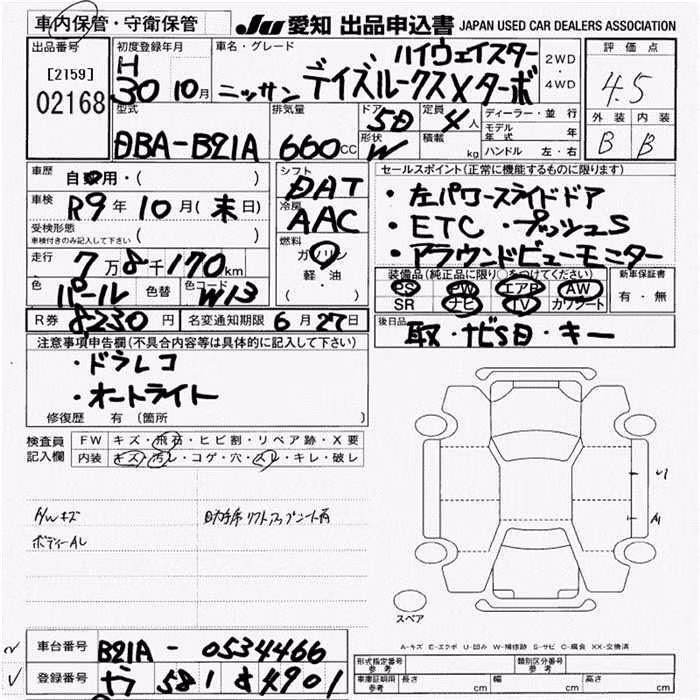 車内保管・守衛保管
JU 愛知 出品申込書 JAPAN USED CAR DEALERS ASSOCIATION
出品番号
[2159]
02168
初度登録年月
H
30 10月
車名・グレード
ハイウェイスター
ニッサン デイズルークスXターボ
2WD
・
4WD
評価点
4.5
外装 内装
B B
型式
DBA-B21A
排気量
660cc
ドア
5D
形状
W
定員
4人
積載
kg
ディーラー・並行
モデル年式 年
ハンドル 左・右
車歴
自家用・( )
車検
R9年10月(末日)
受検形態
車検付きのみ記入して下さい ( )
走行
7万8千170km
色 パール 色替 色コード W13
シフト
DAT
冷房
AAC
燃料
ガソリン
軽・油
( )
セールスポイント(正常に機能するものに限ります)
・左パワースライドドア
・ETC ・プッシュS
・アラウンドビューモニター
装備品(純正品に限り○をつけてください)
PS PW エアB AW
SR ナビ TV カワシート
新車保証書
有・無
R券 8230円 名変通知期限 6月27日
後日品
取・ナビSD・キー
注意事項申告欄(不具合内容等は具体的に記入して下さい)
・ドラレコ
・オートライト
修復歴 有 (箇所 )
検査員
記入欄
FW キズ・飛石・ヒビ割・リペア跡・X要
内装 キズ・汚レ・コゲ・穴・スレ・キレ・破レ
A/Wキズ
ボディーAL
スペア
A-キズ E-エクボ U-凹み W-補修跡 S-サビ C-腐食 XX-交換済
車台番号 B21A - 0534466
登録番号 581 4901
形式指定番号
参考
類別区分番号
参考
車庫証明用
参考
長さ cm 幅 cm 高さ cm